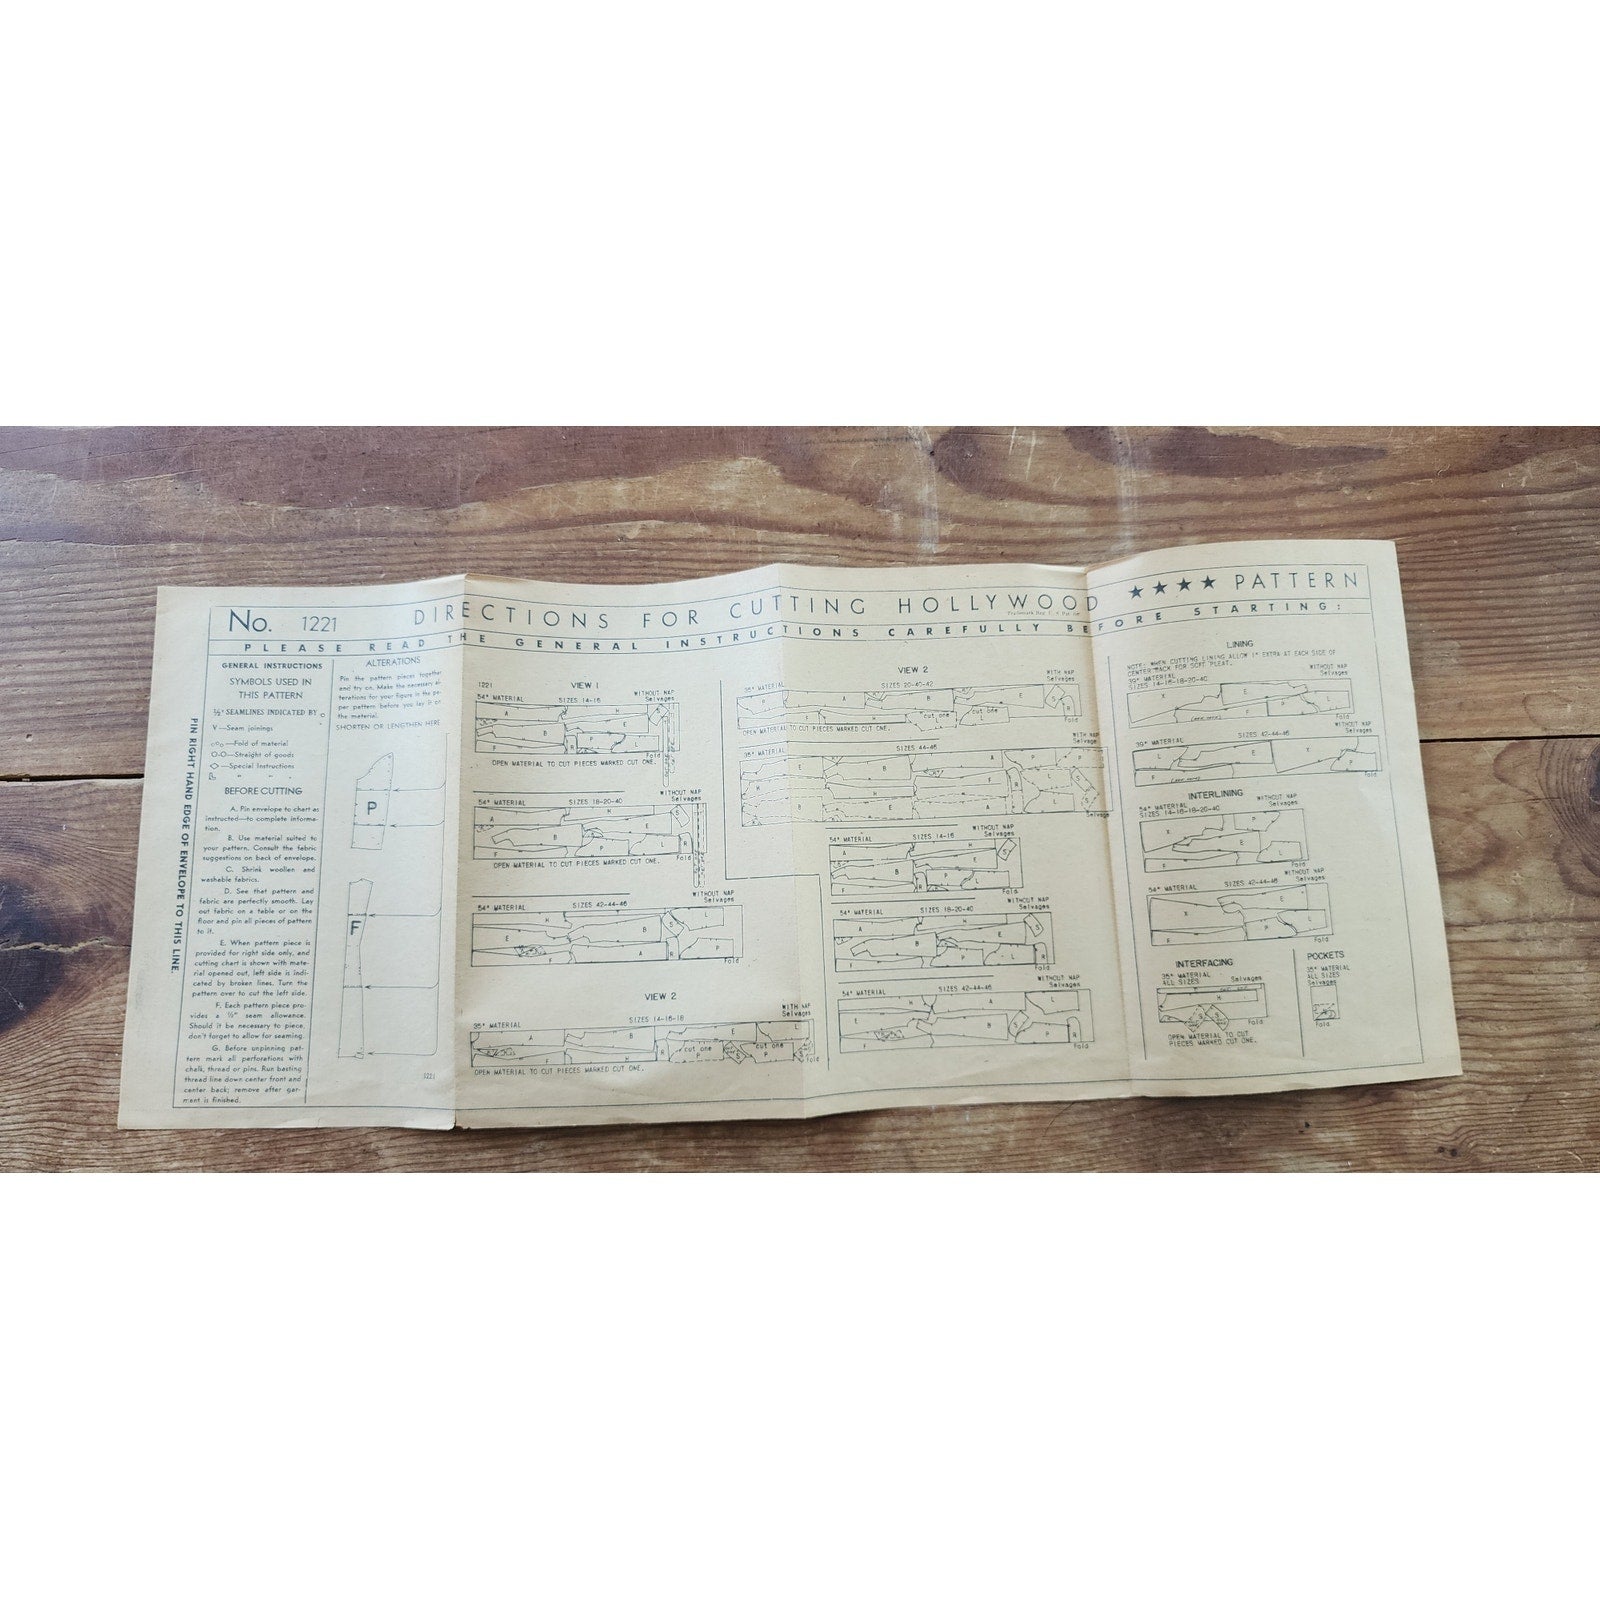 No. 1221 DIRECTIONS FOR CUTTING HOLLYWOOD ★★★★ PATTERN
PLEASE READ THE GENERAL INSTRUCTIONS CAREFULLY BEFORE STARTING:
PIN RIGHT HAND EDGE OF ENVELOPE TO THIS LINE.
GENERAL INSTRUCTIONS
SYMBOLS USED IN
THIS PATTERN
½" SEAMLINES INDICATED BY o
V—Seam joinings
—Fold of material
O-O—Straight of goods
◇—Special Instructions
" " "
BEFORE CUTTING
A. Pin envelope to chart as
instructed—to complete informa-
tion.
B. Use material suited to
your pattern. Consult the fabric
suggestions on back of envelope.
C. Shrink woollen and
washable fabrics.
D. See that pattern and
fabric are perfectly smooth. Lay
out fabric on a table or on the
floor and pin all pieces of pattern
to it.
E. When pattern piece is
provided for right side only, and
cutting chart is shown with mate-
rial opened out, left side is indi-
cated by broken lines. Turn the
pattern over to cut the left side.
F. Each pattern piece pro-
vides a ½" seam allowance.
Should it be necessary to piece,
don't forget to allow for seaming.
G. Before unpinning pat-
tern mark all perforations with
chalk, thread or pins. Run basting
thread line down center front and
center back; remove after gar-
ment is finished.
ALTERATIONS
Pin the pattern pieces together
and try on. Make the necessary al-
terations for your figure in the pa-
per pattern before you lay it on
the material.
SHORTEN OR LENGTHEN HERE
P
F
1221
1221
VIEW 1
54" MATERIAL SIZES 14-16 WITHOUT NAP
Selvages
Fold
OPEN MATERIAL TO CUT PIECES MARKED CUT ONE.
54" MATERIAL SIZES 18-20-40 WITHOUT NAP
Selvages
Fold
OPEN MATERIAL TO CUT PIECES MARKED CUT ONE.
54" MATERIAL SIZES 42-44-46 WITHOUT NAP
Selvages
Fold
VIEW 2
35" MATERIAL SIZES 14-16-18 WITH NAP
Selvages
cut one cut one
Fold
OPEN MATERIAL TO CUT PIECES MARKED CUT ONE.
VIEW 2
35" MATERIAL SIZES 20-40-42 WITH NAP
Selvages
cut one cut one
Fold
OPEN MATERIAL TO CUT PIECES MARKED CUT ONE.
35" MATERIAL SIZES 44-46 WITH NAP
Selvage
Selvage
54" MATERIAL SIZES 14-16 WITHOUT NAP
Selvages
Fold
54" MATERIAL SIZES 18-20-40 WITHOUT NAP
Selvages
Fold
54" MATERIAL SIZES 42-44-46 WITHOUT NAP
Selvages
Fold
LINING
NOTE: WHEN CUTTING LINING ALLOW 1" EXTRA AT EACH SIDE OF
CENTER BACK FOR SOFT PLEAT.
39" MATERIAL WITHOUT NAP
SIZES 14-16-18-20-40 Selvages
Fold
39" MATERIAL SIZES 42-44-46 WITHOUT NAP
Selvages
Fold
INTERLINING
54" MATERIAL WITHOUT NAP
SIZES 14-16-18-20-40 Selvages
Fold
54" MATERIAL SIZES 42-44-46 WITHOUT NAP
Selvages
Fold
INTERFACING
35" MATERIAL
ALL SIZES Selvages
Fold
OPEN MATERIAL TO CUT
PIECES MARKED CUT ONE.
POCKETS
35" MATERIAL
ALL SIZES
Selvages
Fold